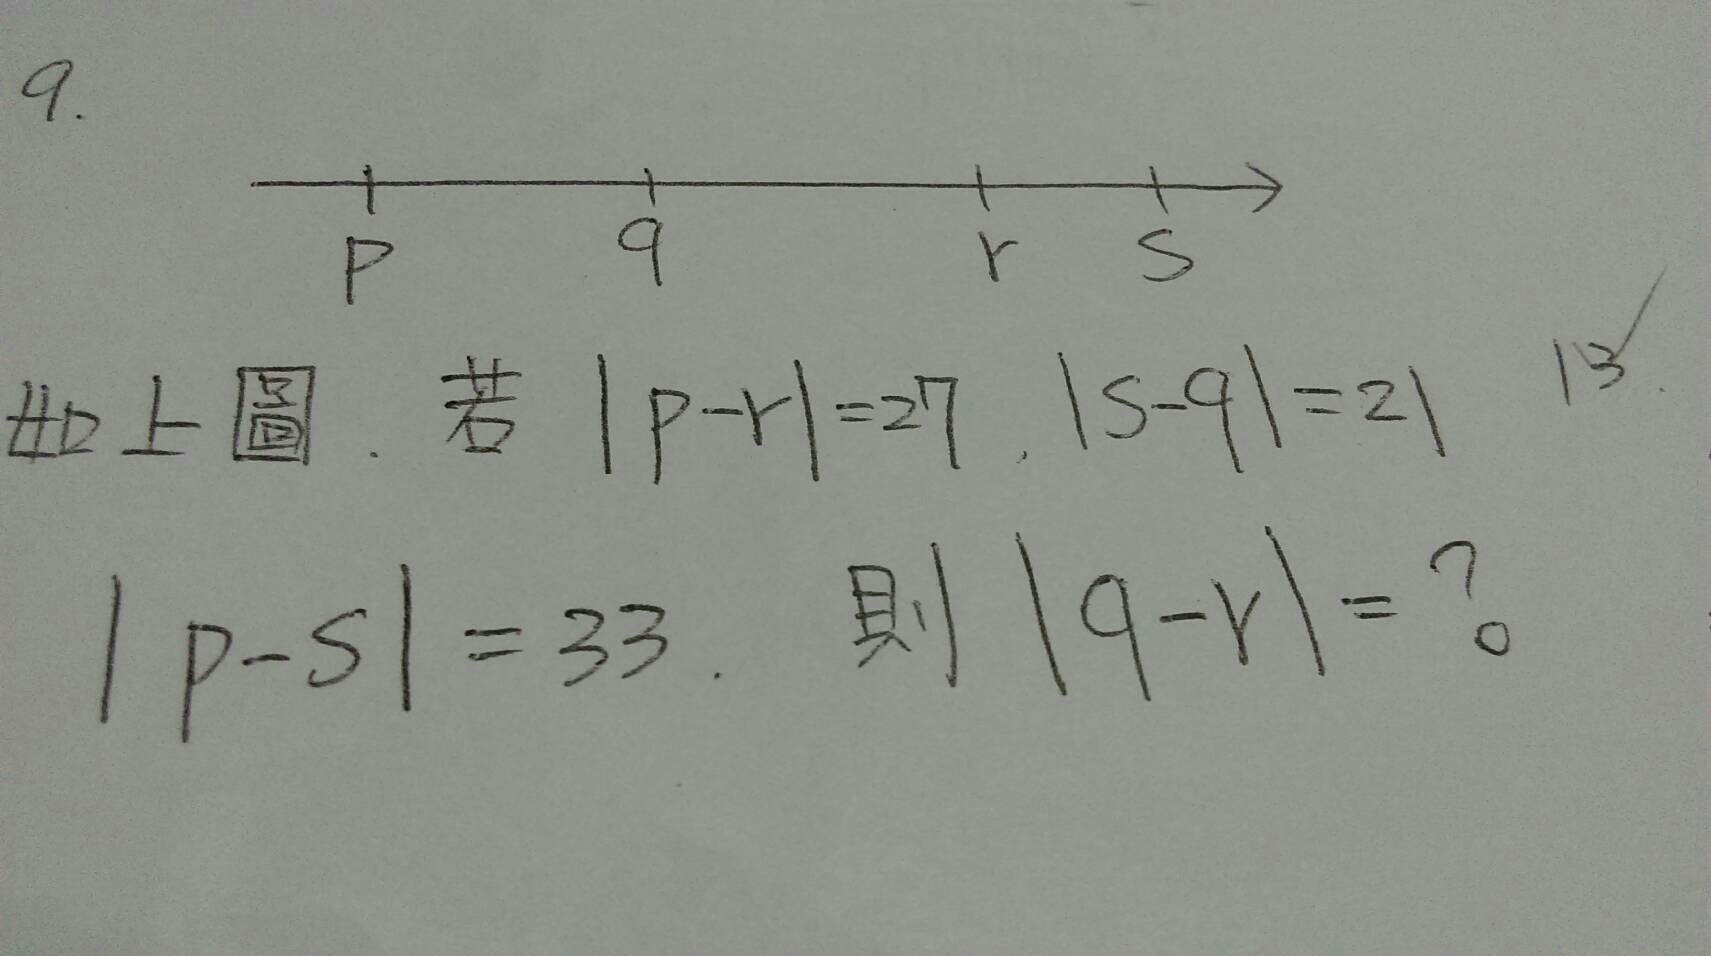 9.
p q r s
如上圖.若|p-r|=27,|s-q|=21 13.
|p-s|=33. 則|q-r|=?